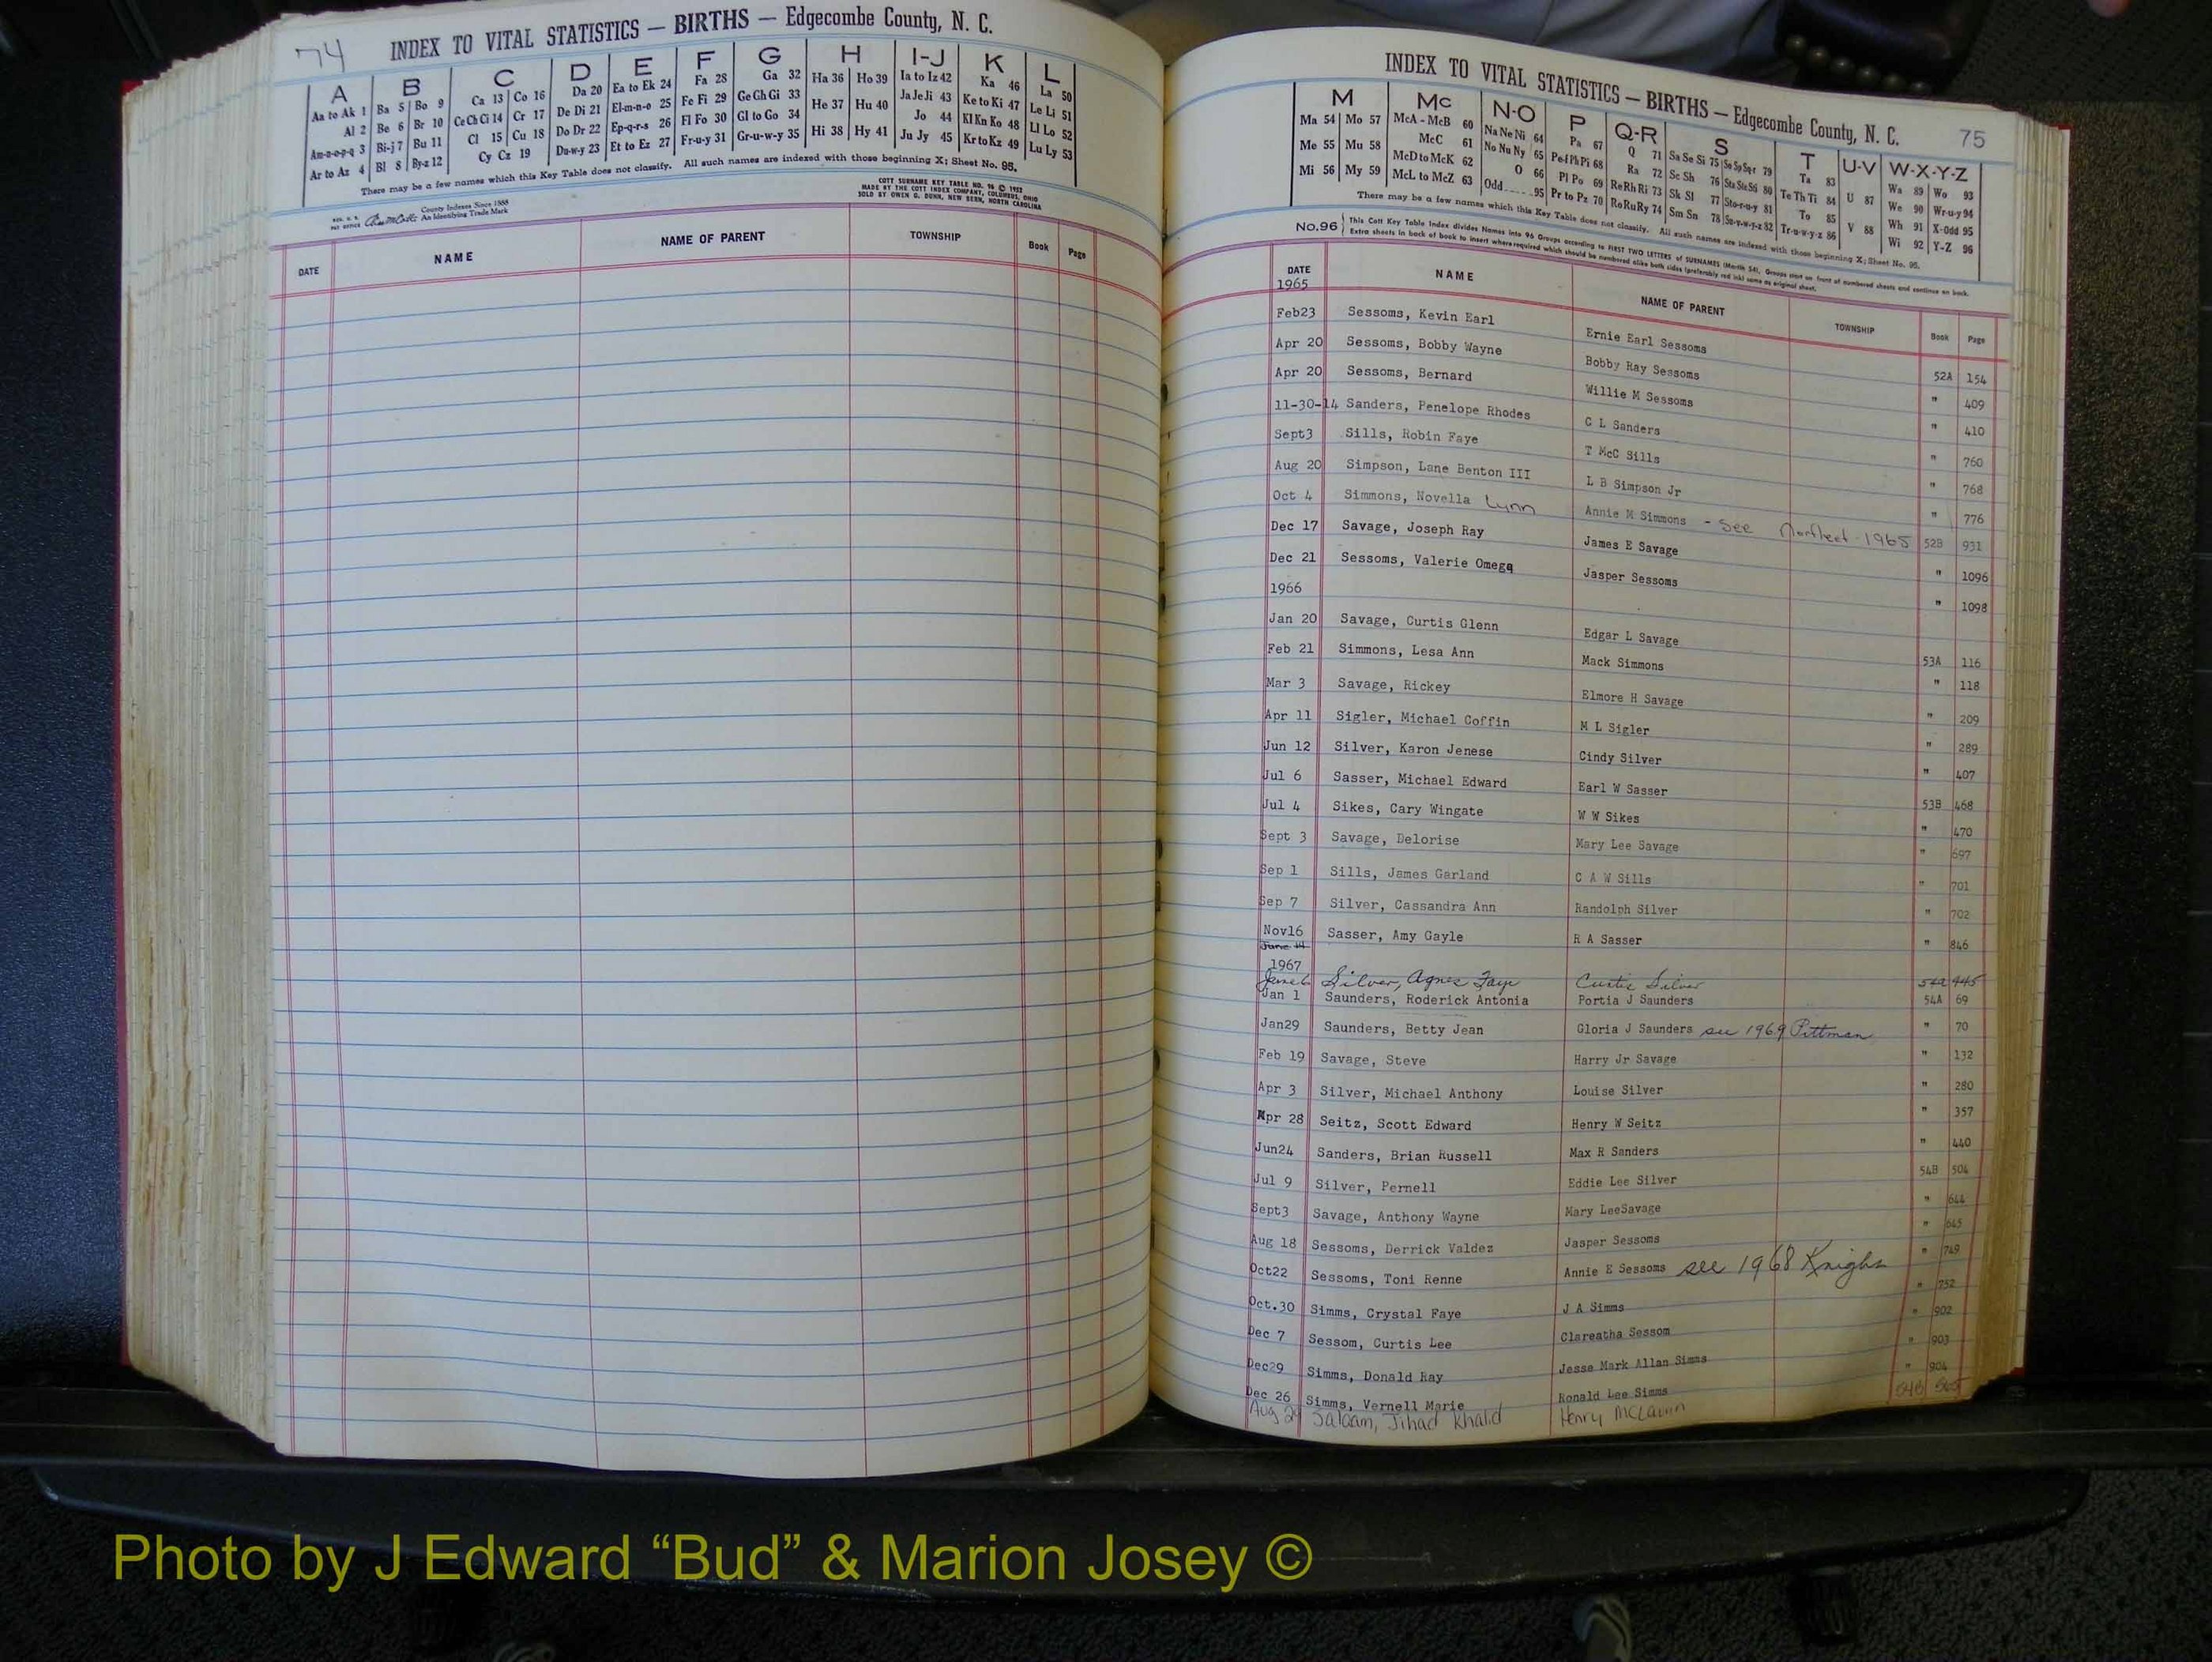 74
INDEX TO VITAL STATISTICS — BIRTHS — Edgecombe County, N. C.
A B C D E F G H I-J K L
Aa to Ak 1 Ba 5 Bo 9 Ca 13 Co 16 Da 20 Ea to Ek 24 Fa 28 Ga 32 Ha 36 Ho 39 Ia to Iz 42 Ka 46 La 50
Al 2 Be 6 Br 10 Ce Ch Ci 14 Cr 17 De Di 21 El-m-n-o 25 Fe Fi 29 Ge Gh Gi 33 He 37 Hu 40 Ja Je Ji 43 Ke to Ki 47 Le Li 51
Am-n-o-p-q 3 Bi-j 7 Bu 11 Cl 15 Cu 18 Do Dr 22 Ep-q-r-s 26 Fl Fo 30 Gl to Go 34 Hi 38 Hy 41 Jo 44 Kl Kn Ko 48 Ll Lo 52
Ar to Az 4 Bl 8 By-z 12 Cy Cz 19 Du-w-y 23 Et to Ez 27 Fr-u-y 31 Gr-u-w-y 35 Ju Jy 45 Kr to Kz 49 Lu Ly 53
There may be a few names which this Key Table does not classify. All such names are indexed with those beginning X; Sheet No. 95.
County Indexes Since 1888
An Identifying Trade Mark
COTT SURNAME KEY TABLE NO. 96 © 1952
MADE BY THE COTT INDEX COMPANY, COLUMBUS, OHIO
SOLD BY OWEN G. DUNN, NEW BERN, NORTH CAROLINA
DATE NAME NAME OF PARENT TOWNSHIP Book Page
INDEX TO VITAL STATISTICS — BIRTHS — Edgecombe County, N. C. 75
M Mc N-O P Q-R S T U-V W-X-Y-Z
Ma 54 Mo 57 McA - McB 60 Na Ne Ni 64 Pa 67 Q 71 Sa Se Si 75 So Sp Sq-r 79 Ta 83 U 87 Wa 89 Wo 93
Me 55 Mu 58 McC 61 No Nu Ny 65 Pe-f Ph Pi 68 Ra 72 Sc Sh 76 Sta Ste Sti 80 Te Th Ti 84 V 88 We 90 Wr-u-y 94
Mi 56 My 59 McD to McK 62 O 66 Pl Po 69 Re Rh Ri 73 Sk Sl 77 Sto-r-u-y 81 To 85 Wh 91 X-Odd 95
McL to McZ 63 Odd 95 Pr to Pz 70 Ro Ru Ry 74 Sm Sn 78 Su-v-w-y-z 82 Tr-u-w-y-z 86 Wi 92 Y-Z 96
There may be a few names which this Key Table does not classify. All such names are indexed with those beginning X; Sheet No. 95.
No.96 This Cott Key Table Index divides Names into 96 Groups according to FIRST TWO LETTERS of SURNAMES (Martin 54). Groups start on front of numbered sheets and continue on back.
Extra sheets in back of book to insert where required which should be numbered alike both sides (preferably red ink) same as original sheet.
DATE NAME NAME OF PARENT TOWNSHIP Book Page
1965
Feb23 Sessoms, Kevin Earl Ernie Earl Sessoms 52A 154
Apr 20 Sessoms, Bobby Wayne Bobby Ray Sessoms " 409
Apr 20 Sessoms, Bernard Willie M Sessoms " 410
11-30-14 Sanders, Penelope Rhodes C L Sanders " 760
Sept3 Sills, Robin Faye T McC Sills " 768
Aug 20 Simpson, Lane Benton III L B Simpson Jr " 776
Oct 4 Simmons, Novella Lynn Annie M Simmons - See Norfleet 1965 52B 931
Dec 17 Savage, Joseph Ray James E Savage " 1096
Dec 21 Sessoms, Valerie Omega Jasper Sessoms " 1098
1966
Jan 20 Savage, Curtis Glenn Edgar L Savage 53A 116
Feb 21 Simmons, Lesa Ann Mack Simmons " 118
Mar 3 Savage, Rickey Elmore H Savage " 209
Apr 11 Sigler, Michael Coffin M L Sigler " 289
Jun 12 Silver, Karon Jenese Cindy Silver " 407
Jul 6 Sasser, Michael Edward Earl W Sasser 53B 468
Jul 4 Sikes, Cary Wingate W W Sikes " 470
Sept 3 Savage, Delorise Mary Lee Savage " 697
Sep 1 Sills, James Garland C A W Sills " 701
Sep 7 Silver, Cassandra Ann Randolph Silver " 702
Nov16 Sasser, Amy Gayle R A Sasser " 846
1967
June 6 Silver, Agnes Faye Curtis Silver 54A 445
Jan 1 Saunders, Roderick Antonia Portia J Saunders 54A 69
Jan29 Saunders, Betty Jean Gloria J Saunders see 1969 Pittman " 70
Feb 19 Savage, Steve Harry Jr Savage " 132
Apr 3 Silver, Michael Anthony Louise Silver " 280
Apr 28 Seitz, Scott Edward Henry W Seitz " 357
Jun24 Sanders, Brian Russell Max R Sanders " 440
Jul 9 Silver, Pernell Eddie Lee Silver 54B 504
Sept3 Savage, Anthony Wayne Mary LeeSavage " 644
Aug 18 Sessoms, Derrick Valdez Jasper Sessoms " 645
Oct22 Sessoms, Toni Renne Annie E Sessoms see 1968 Knight " 749
Oct.30 Simms, Crystal Faye J A Simms " 752
Dec 7 Sessom, Curtis Lee Clareatha Sessom " 902
Dec29 Simms, Donald Ray Jesse Mark Allan Simms " 903
Dec 26 Simms, Vernell Marie Ronald Lee Simms " 904
Aug 29 Salaam, Jihad Khalid Henry McLaurin 54B 565
Photo by J Edward “Bud” & Marion Josey ©